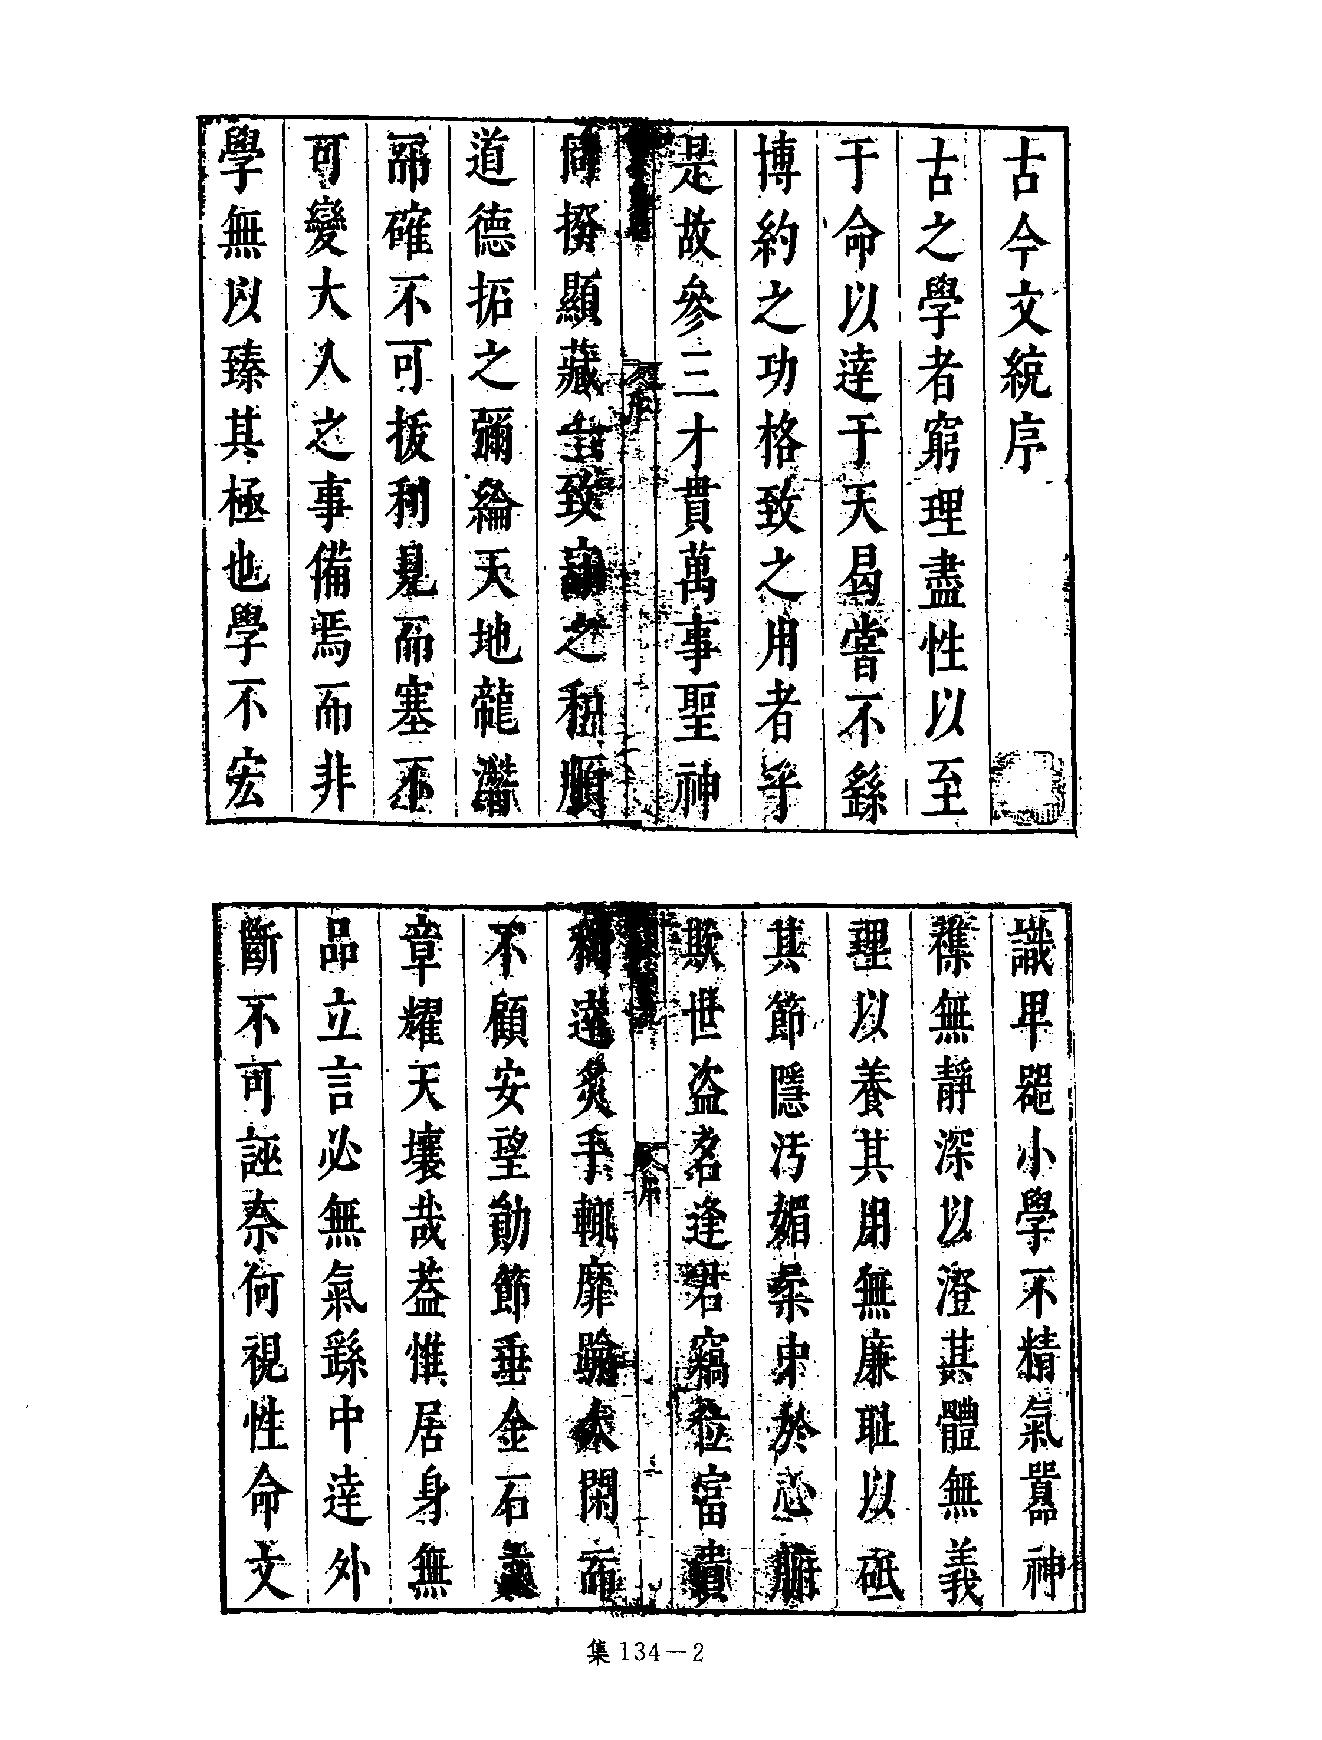 古今文統序
古之學者窮理盡性以至
于命以達于天曷嘗不繇
博約之功格致之用者乎
是故參三才貫萬事聖神
同揆顯藏一致之和順
道德拓之彌綸天地龍潛
而確不可拔利見而塞不
可變大人之事備焉而非
學無以臻其極也學不宏
識卑器小學不精氣囂神
襍無靜深以澄其體無義
理以養其用無廉恥以砥
其節隱汚媚柔中於心腑
欺世盜名逢君竊位富貴
利達炙手輒靡踰大閑而
不顧安望勛節垂金石
章耀天壤哉葢惟居身無
品立言必無氣繇中達外
斷不可誣奈何視性命文
集134－2